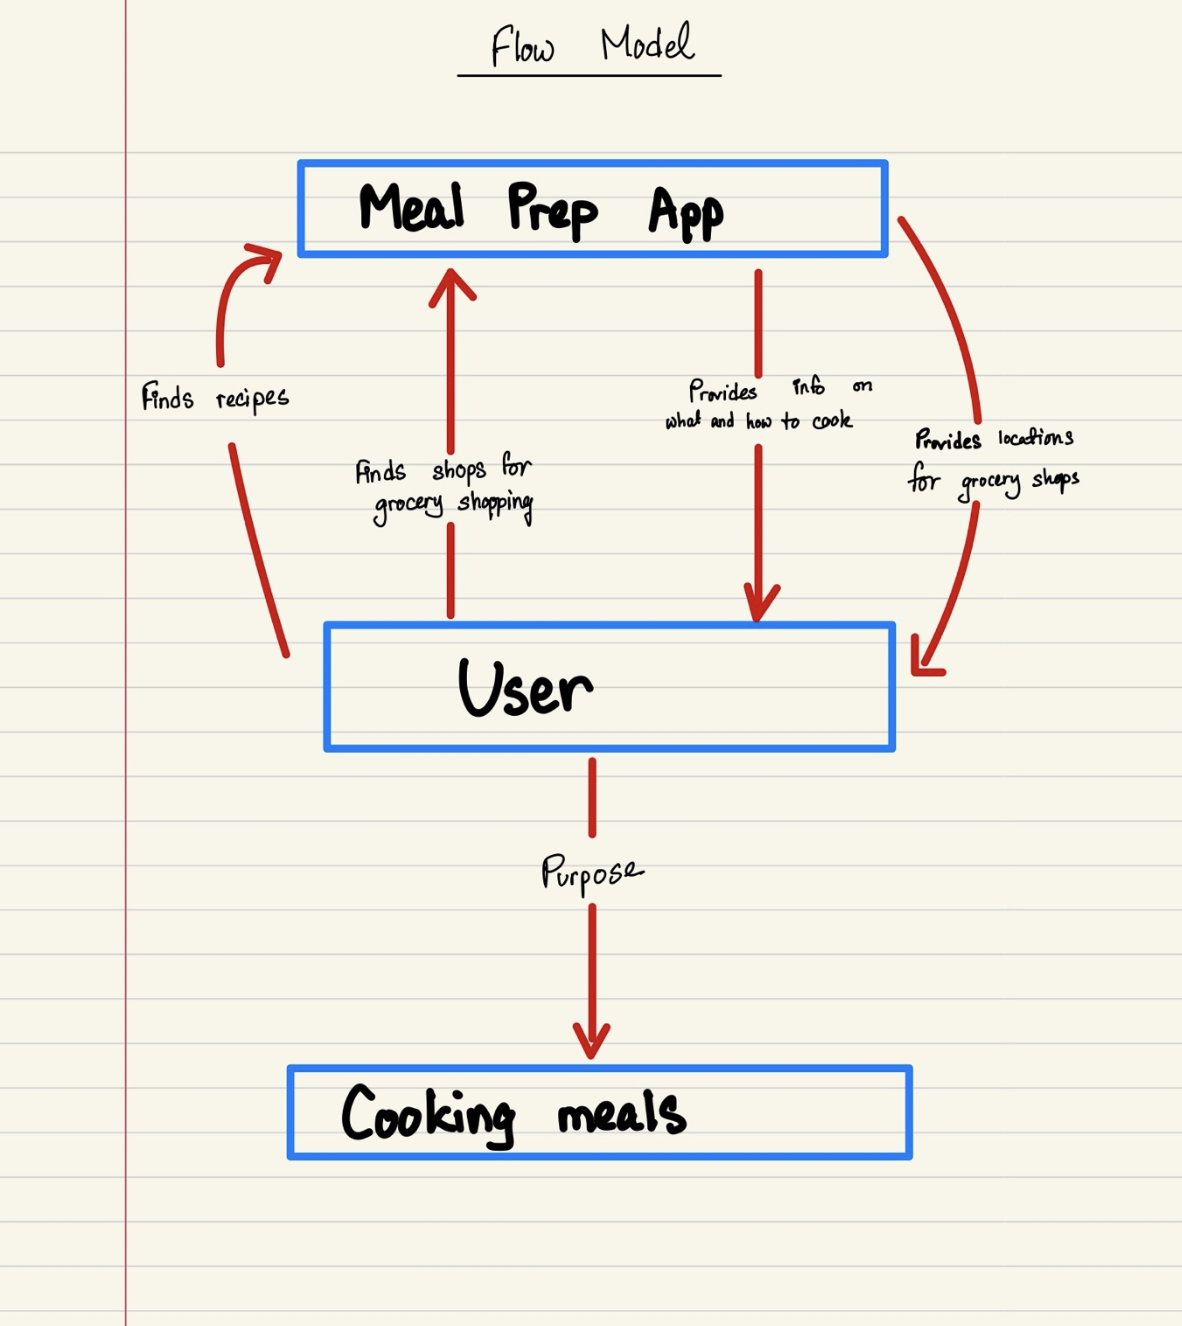 Flow Model
Meal Prep App
Finds recipes
Finds shops for
grocery shopping
Provides info on
what and how to cook
Provides locations
for grocery shops
User
Purpose
Cooking meals